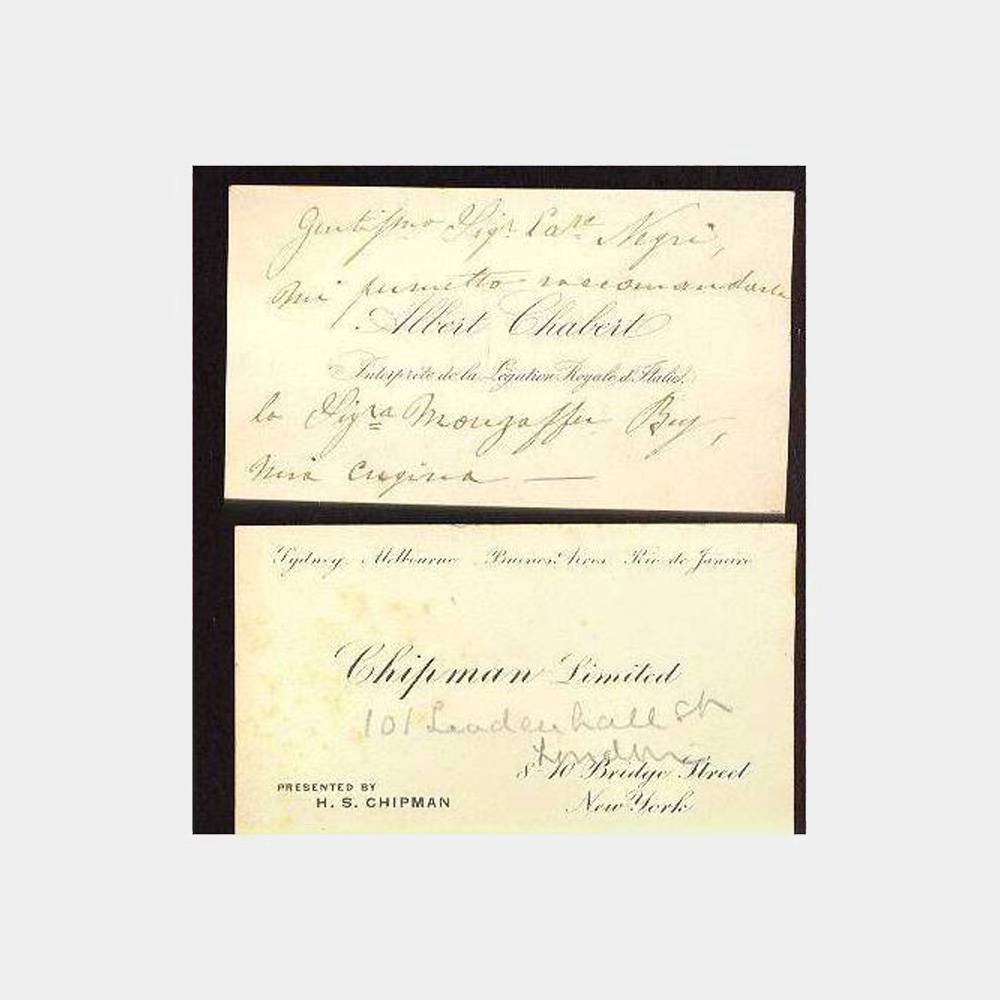 Gentissmo Sigr Cavre Negri,
mi permetto raccomandarle
Albert Chabert
Interprète de la Légation Royale d'Italie.
la Sigra Mouzaffer Bey,
mia cugina —
Sydney. Melbourne Buenos Aires Rio de Janeiro
Chipman Limited
101 Leadenhall St
London
8-10 Bridge Street
New York
PRESENTED BY
H. S. CHIPMAN